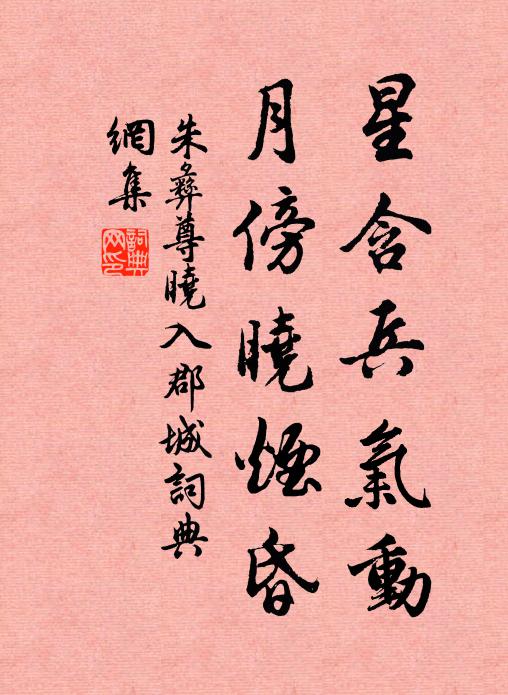 星含兵氣動
月傍曉煙昏
朱彝尊曉入郡城詞典
網集
詞典網印